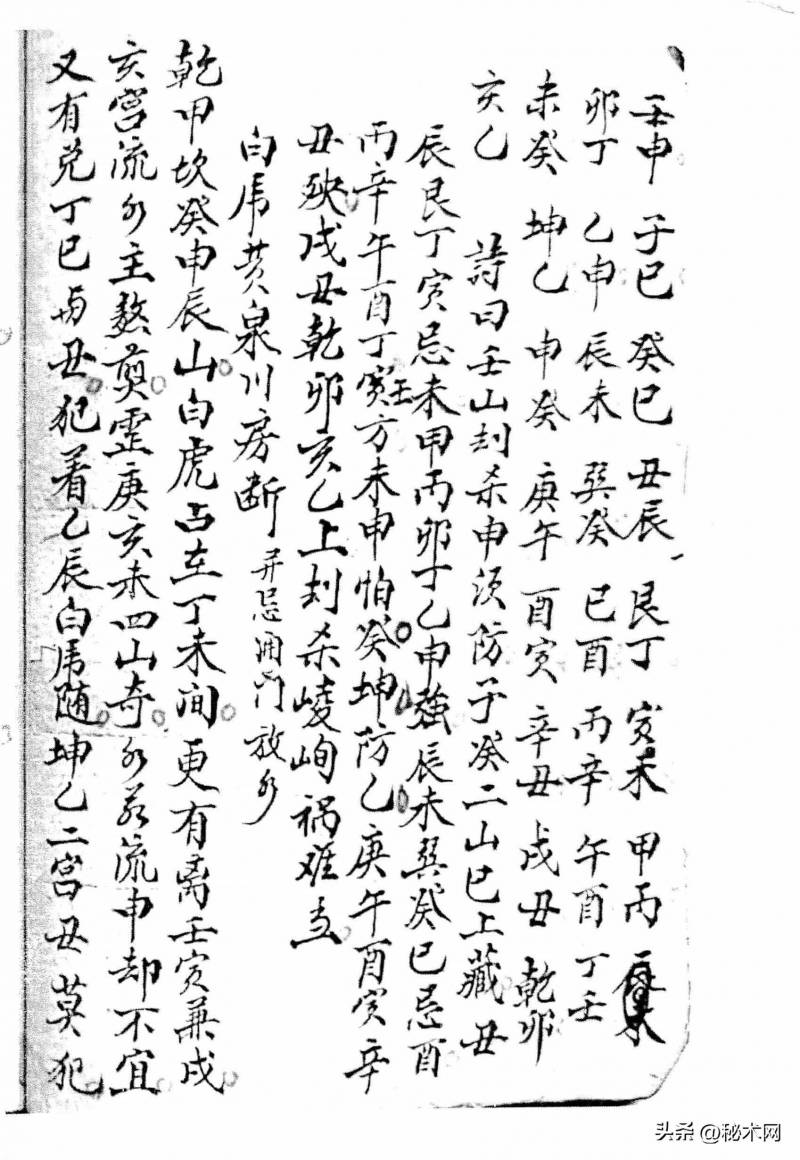 壬申 子巳 癸巳 丑辰 艮丁 寅未 甲丙
卯丁 乙申 辰未 巽癸 巳酉 丙辛 午酉 丁壬
未癸 坤乙 申癸 庚午 酉寅 辛丑 戌丑 乾卯
亥乙
詩曰壬山刦杀申須防子癸二山巳上藏丑
辰艮丁寅忌未甲丙卯丁乙申強辰未巽癸巳忌酉
丙辛午酉丁壬寅方未申怕癸坤防乙庚午酉寅辛
丑殃戌丑乾卯亥乙上刦杀崚峋祸难当
白虎黄泉川房断 并忌開门放水
乾甲坎癸申辰山白虎占在丁未间更有离壬寅兼戌
亥宫流水主熬煎震庚亥未四山奇水若流申却不宜
又有兑丁巳与丑犯着乙辰白虎随坤乙二宫丑莫犯
头条 @秘术网